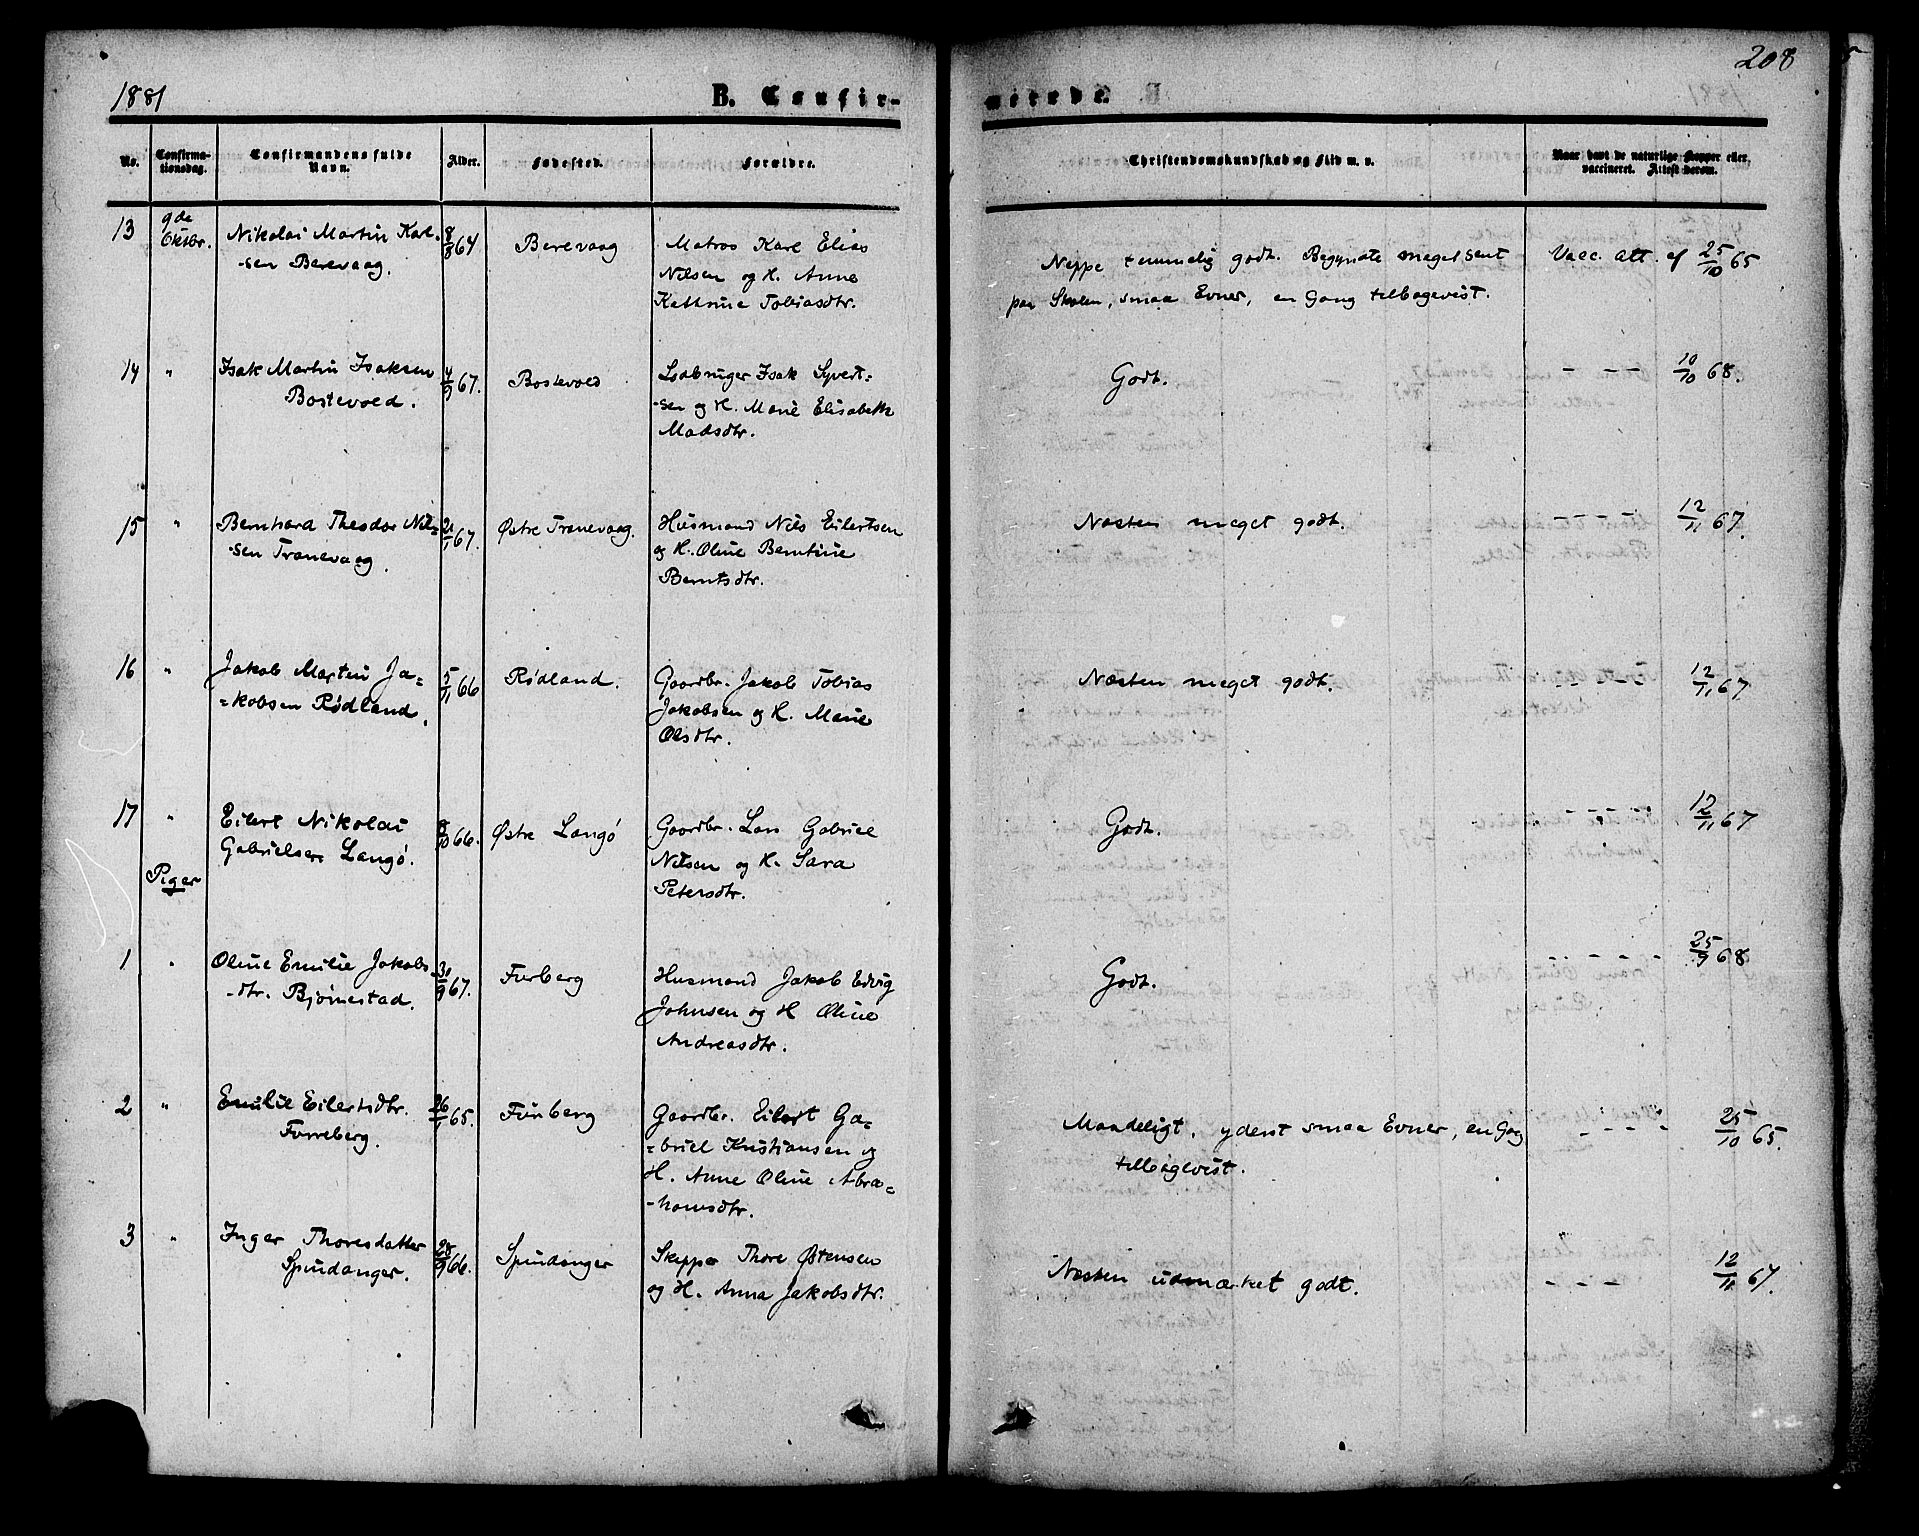 208
1881
B. Confir-
merede.
No.
Confirma-
tionsdag.
Confirmandens fulde
Navn.
Alder.
Fødested.
Forældre.
Christendomskundskab og Flid m. v.
Naar havt de naturlige Kopper eller
vaccineret. Attest derom.
13
9de
Oktbr.
Nikolai Martin Karl-
-sen Berevaag.
8/8 64
Berevaag
Matros Karl Elias
Nilsen og H. Anne
Kathrine Tobiasdtr.
Neppe temmelig godt. Begyndte meget sent
paa Skolen, smaa Evner, en Gang tilbagevist.
Vacc. att. af 25/10 65
14
"
Isak Martin Isaksen
Bostevold.
4/9 67.
Bostevold
Isak Syvert-
-sen og H. Marie Elisabeth
Madsdtr.
Godt.
- - - 10/10 68.
15
"
Bernhard Theodor Nil-
-sen Tranevaag.
21/1 67.
Østre Tranevaag.
Husmand Nils Eilertsen
og H. Oline Berntine
Berntsdtr.
Næsten meget godt.
- - - - - 12/11 67.
16
"
Jakob Martin Ja-
-kobsen Rødland.
5/11 66
Rødland.
Gaardbr. Jakob Tobias
Jakobsen og H. Marie
Olsdtr.
Næsten meget godt.
- - - - - 12/11 67.
17
"
Eilert Nikolai
Gabrielsen Langø.
8/10 66.
Østre Langø
Gaardbr. Lars Gabriel
Nilsen og H. Sara
Petersdtr.
Godt.
- - - - - 12/11 67
Piger
1
"
Oline Emilie Jakobs-
-dtr. Bjørnestad.
30/9 67.
Furberg
Husmand Jakob Edvig
Johnsen og H Oline
Andreasdtr.
Godt.
- - - - - 25/9 68
2
"
Emilie Eilertsdtr.
Furreberg.
26/1 65.
Furiberg
Gaardbr. Eilert Ga-
-briel Kristiansen og
H. Anne Oline Abra-
-hamsdtr.
Maadeligt, yderst smaa Evner, en Gag
tilbagevist.
- - - - 25/10 65.
3
"
Inger Thoresdatter
Spindanger.
28/9 66.
Spindanger
Skipper Thore Østensen
og H. Anna Jakobsdtr.
Næsten udmærket godt.
- - - 12/11 67.